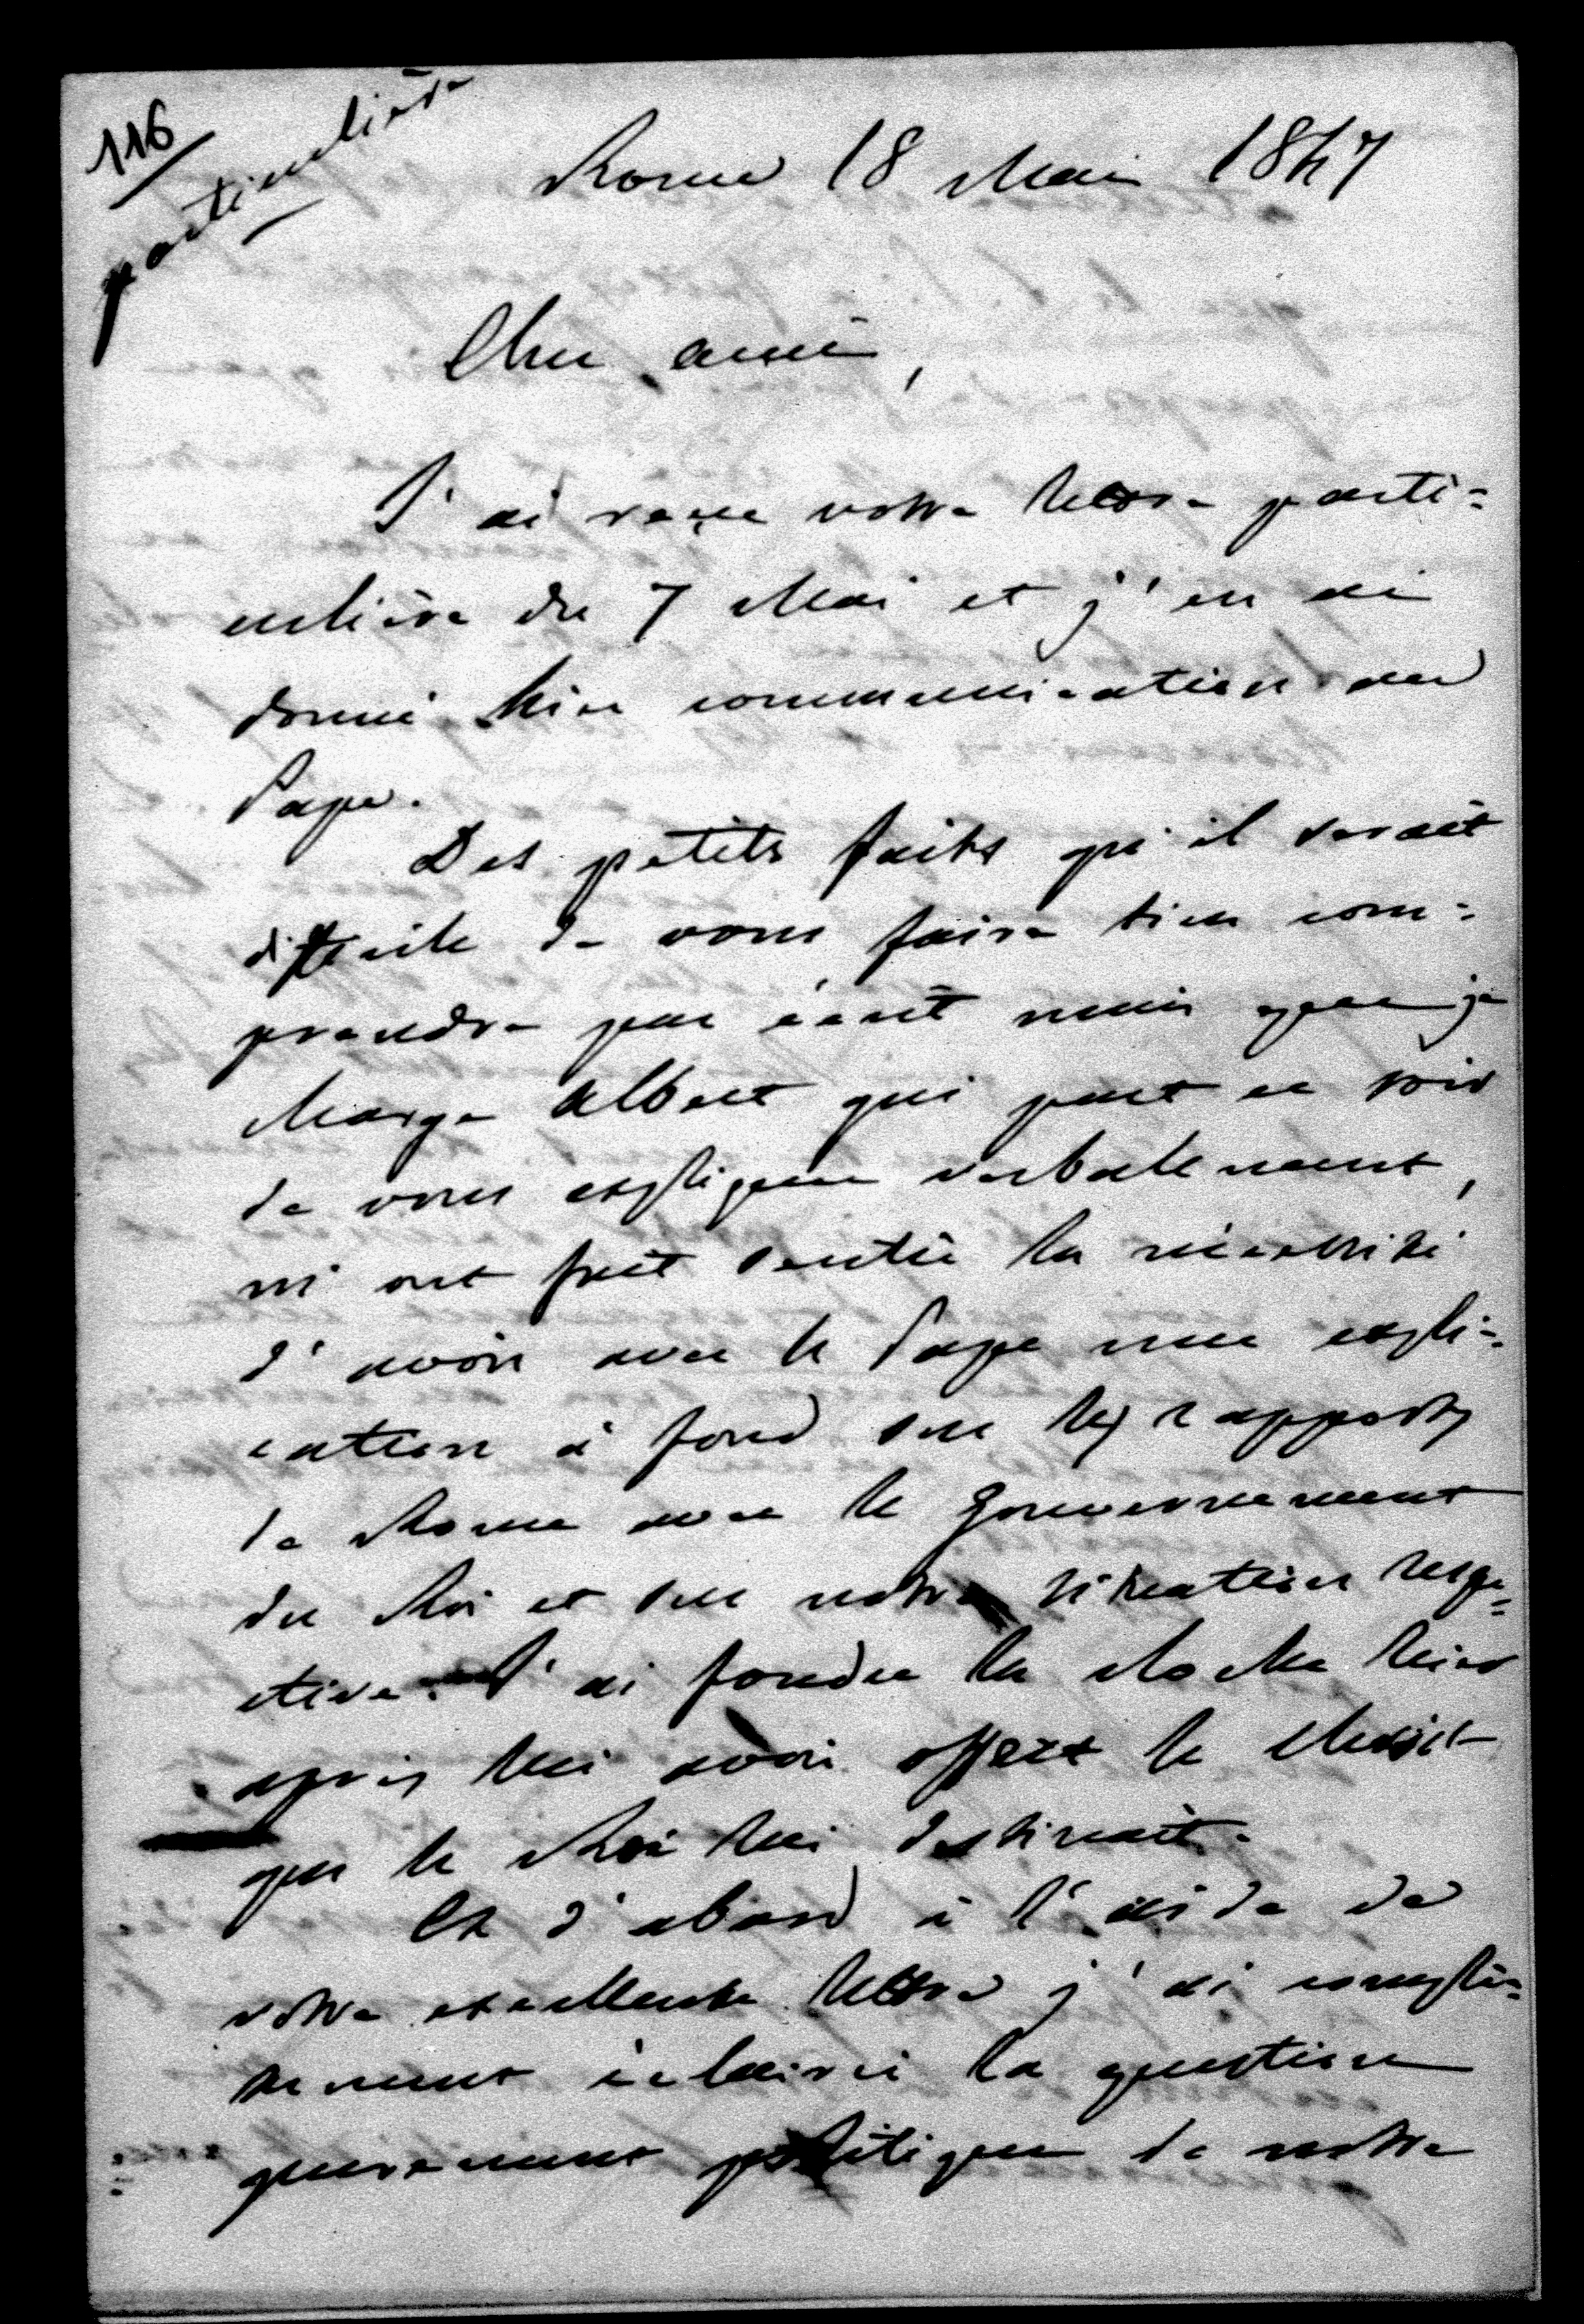 116
particulière
Rome 18 Mai 1847
Cher ami,
J'ai reçu votre lettre parti=
culière du 7 Mai et j'en ai
donné hier communication au
Pape.
Des petits faits qu'il serait
difficile de vous faire bien com=
prendre par écrit mais que je
charge Albert qui part ce soir
de vous expliquer verbalement,
m'ont fait sentir la nécessité
d'avoir avec le Pape une expli=
cation à fond sur les rapports
de Rome avec le Gouvernement
du Roi et sur notre situation respe=
ctive. J'ai fondu la cloche hier
après lui avoir offert le
que le Roi lui destinait.
Et d'abord à l'aide de
votre excellente lettre j'ai complè=
tement éclairci la question
purement politique de notre